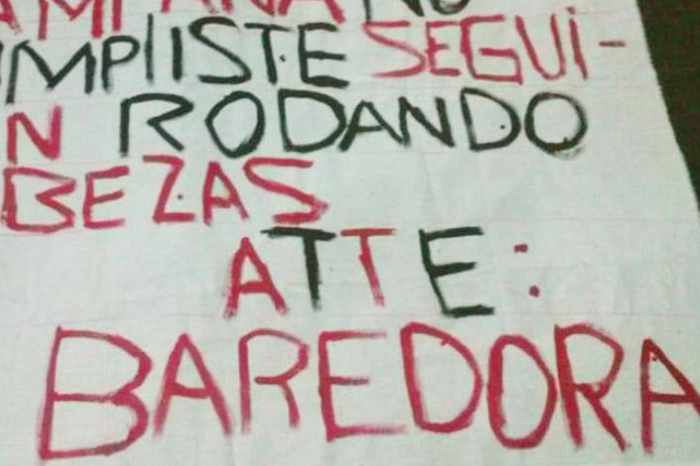 AMPAÑA NO
UMPLISTE SEGUI-
N RODANDO
BEZAS
ATTE:
BAREDORA